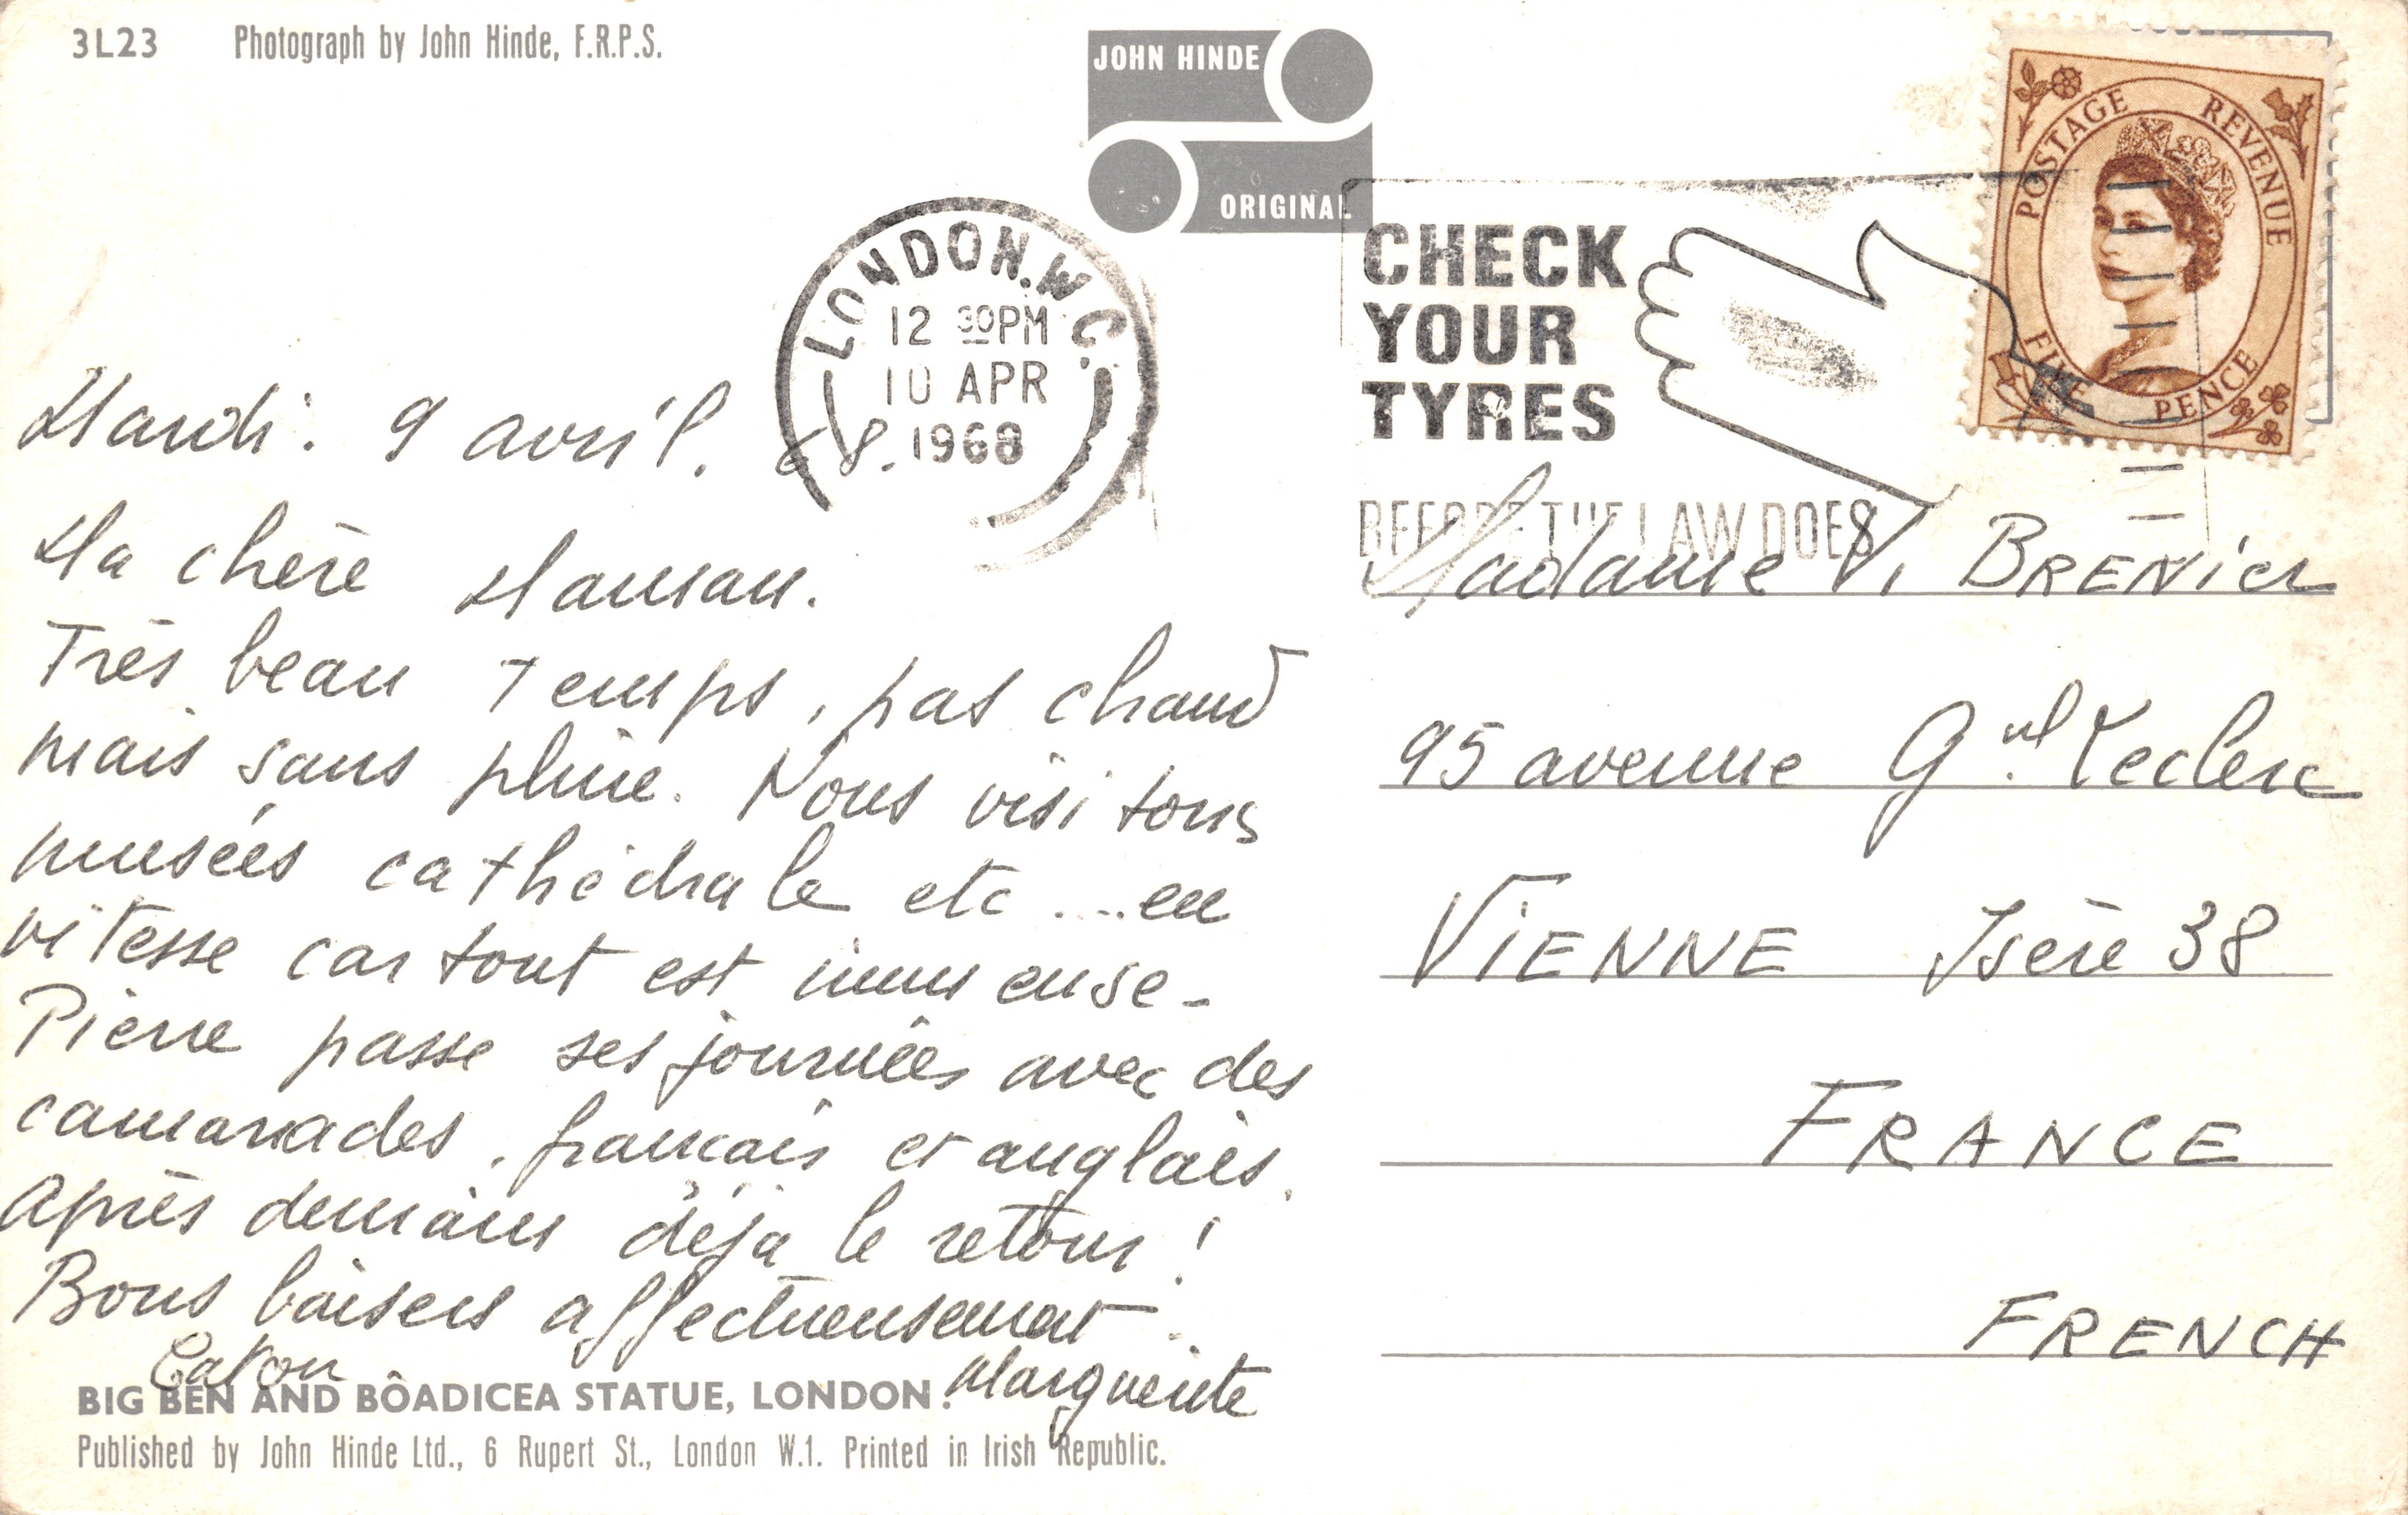 3L23 Photograph by John Hinde, F.R.P.S.
JOHN HINDE
ORIGINAL
POSTAGE REVENUE
FIVE PENCE
LONDON. W.C.
12 30PM
10 APR
1968
CHECK
YOUR
TYRES
BEFORE THE LAW DOES
Mardi: 9 avril. 68.
Ma chère Maman.
Très beau Temps, pas chaud
mais sans pluie. Nous visitons
musées cathédrale etc ... en
vitesse car tout est immense-
Pierre passe ses journées avec des
camarades, français et anglais.
Après demain déjà le retour!
Bons baisers affectueusement.
Marguerite
Madame V. BRENier
95 avenue Gal. Leclerc
ViENNE Isère 38
FRANCE
FRENCH
BIG BEN AND BOADICEA STATUE, LONDON.
Published by John Hinde Ltd., 6 Rupert St., London W.1. Printed in Irish Republic.